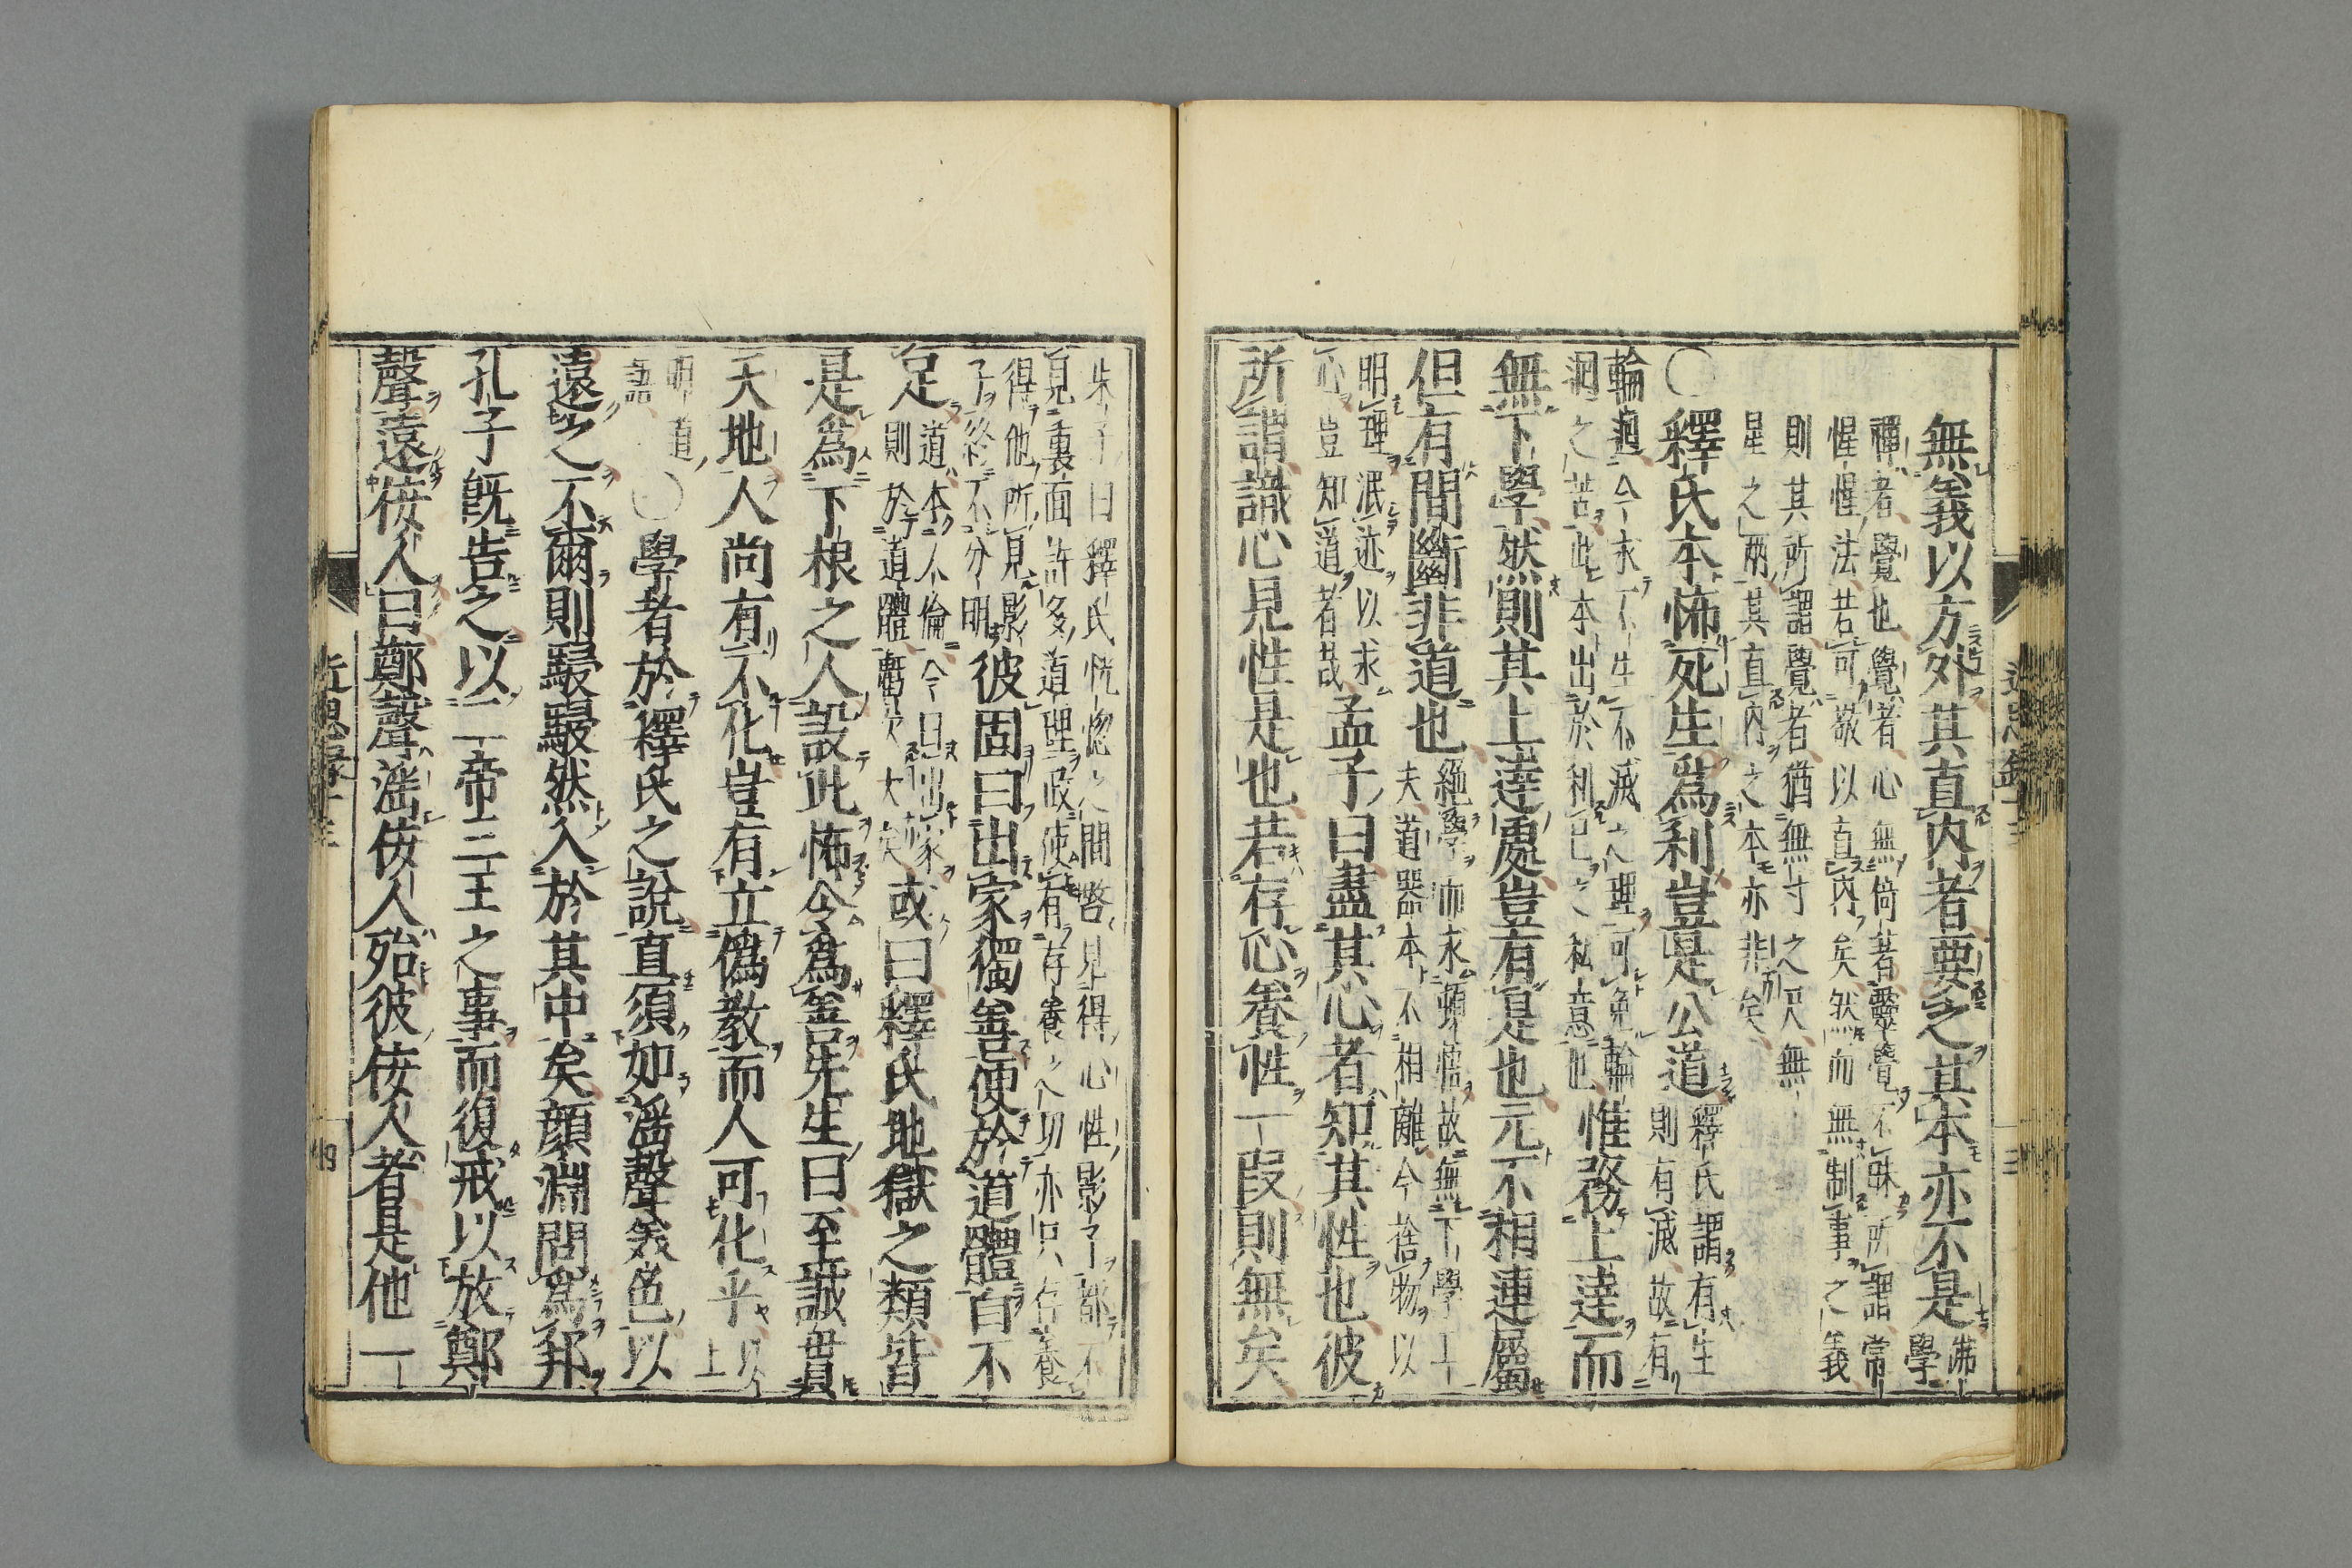 無義以方外其直内者要之其本亦不是佛學
禪者覺也覺者心無倚著靈覺不昧所謂常
惺惺法若可敬以直内矣然而無制事之義
則其所謂覺者猶無寸之尺無
星之兩其直内之本亦非矣
○釋氏本怖死生爲利豈是公道釋氏謂有生
則有滅故有
輪廻今求不生不滅之理可免輪
洄之苦此本出於利己之私意也惟務上達而
無下學然則其上達處豈有是也元不相連屬
但有間斷非道也絕學而求頓悟故無下學工
夫道器本不相離今捨物以
明理泯迹以求
心豈知道者哉孟子曰盡其心者知其性也彼
所謂識心見性是也若存心養性一段則無矣
朱子曰釋氏恍惚之間瞥見得心性影子都不
見裏面許多道理政使有存養之功亦只存養
得他所見影
子終不分明彼固曰出家獨善便於道體自不
足道本人倫今日出家
則於道體虧欠大矣或曰釋氏地獄之類皆
是爲下根之人設此怖令爲善先生曰至誠貫
天地人尚有不化豈有立僞敎而人可化乎以上
明道
語○學者於釋氏之說直須如淫聲美色以
遠之不爾則駸駸然入於其中矣顔淵問爲邦
孔子旣告之以二帝三王之事而復戒以放鄭
聲遠佞人曰鄭聲淫佞人殆彼佞人者是他一
近思錄十三
四